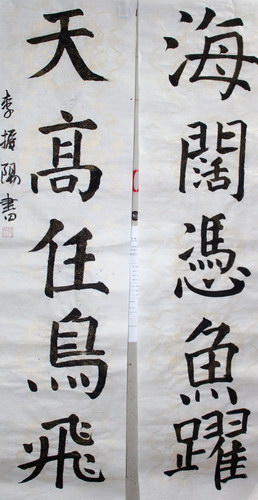 海闊憑魚躍
天高任鳥飛
李振陽書